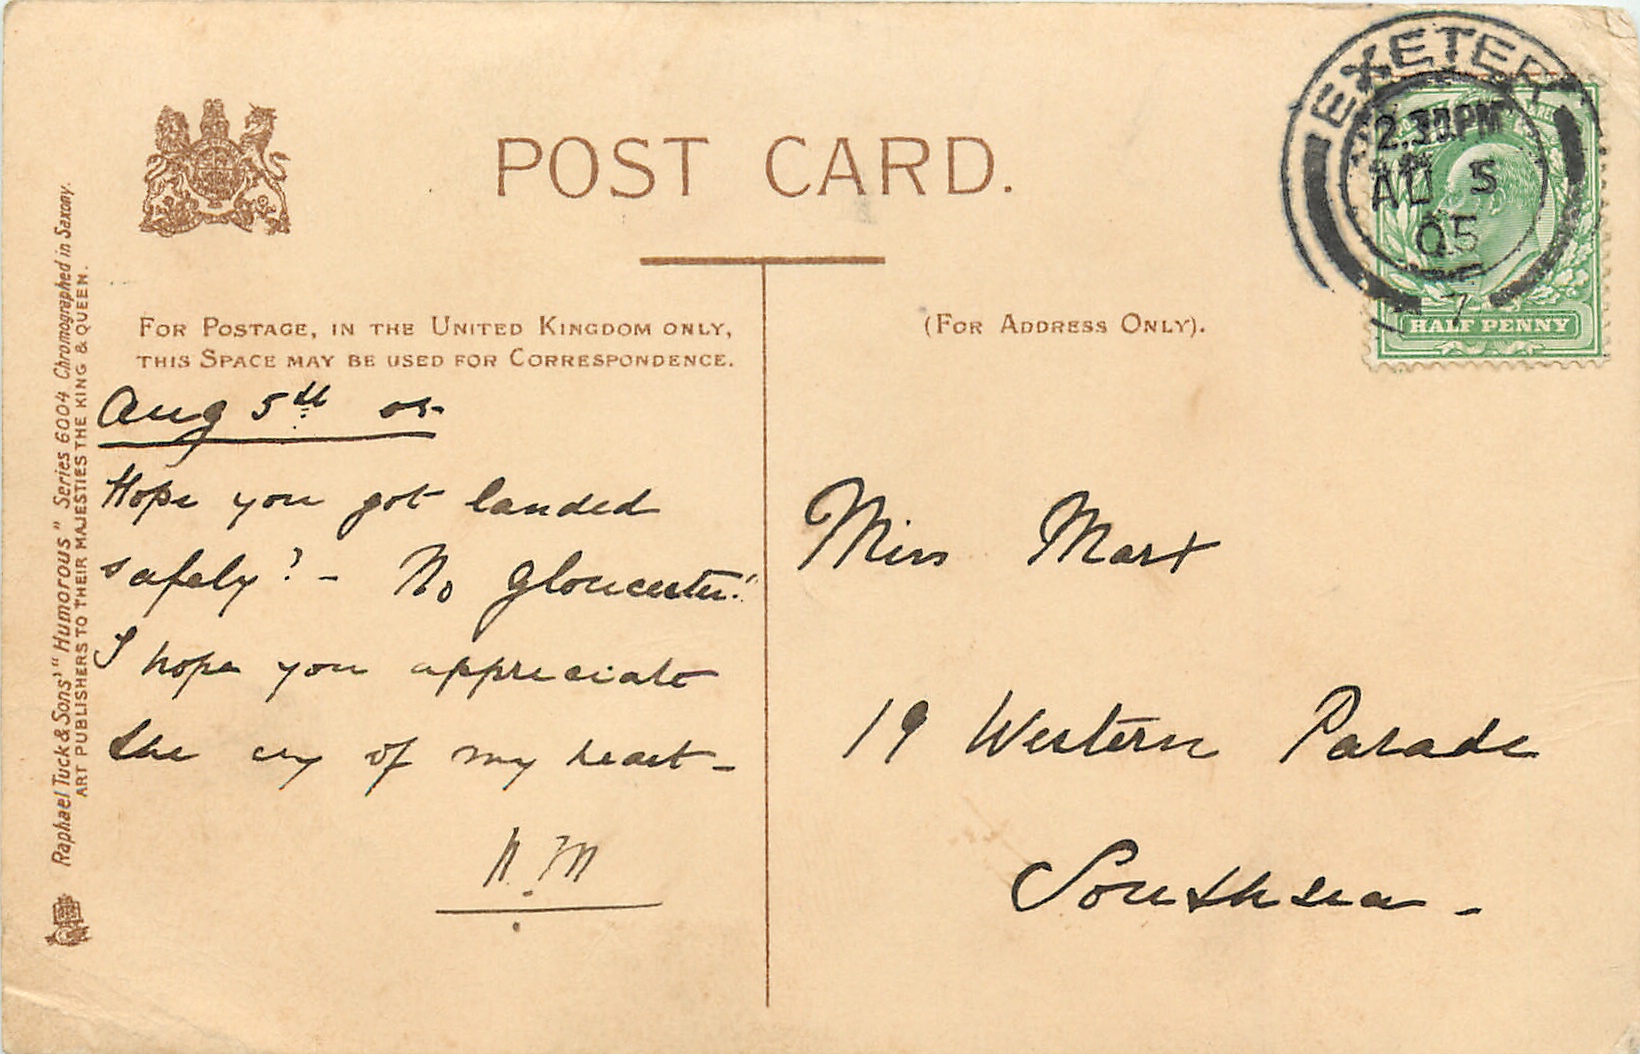 POST CARD.
FOR POSTAGE, IN THE UNITED KINGDOM ONLY,
THIS SPACE MAY BE USED FOR CORRESPONDENCE.
Aug 5th 05
Hope you got landed
safely? - No Gloucester!"
I hope you appreciate
the cry of my heart -
N. M
(FOR ADDRESS ONLY).
Miss Marx
19 Western Parade
Southsea -
EXETER
2.30.PM
AU 5
05
7
HALF PENNY
Raphael Tuck & Sons' "Humorous" Series 6004 Chromographed in Saxony.
ART PUBLISHERS TO THEIR MAJESTIES THE KING & QUEEN.